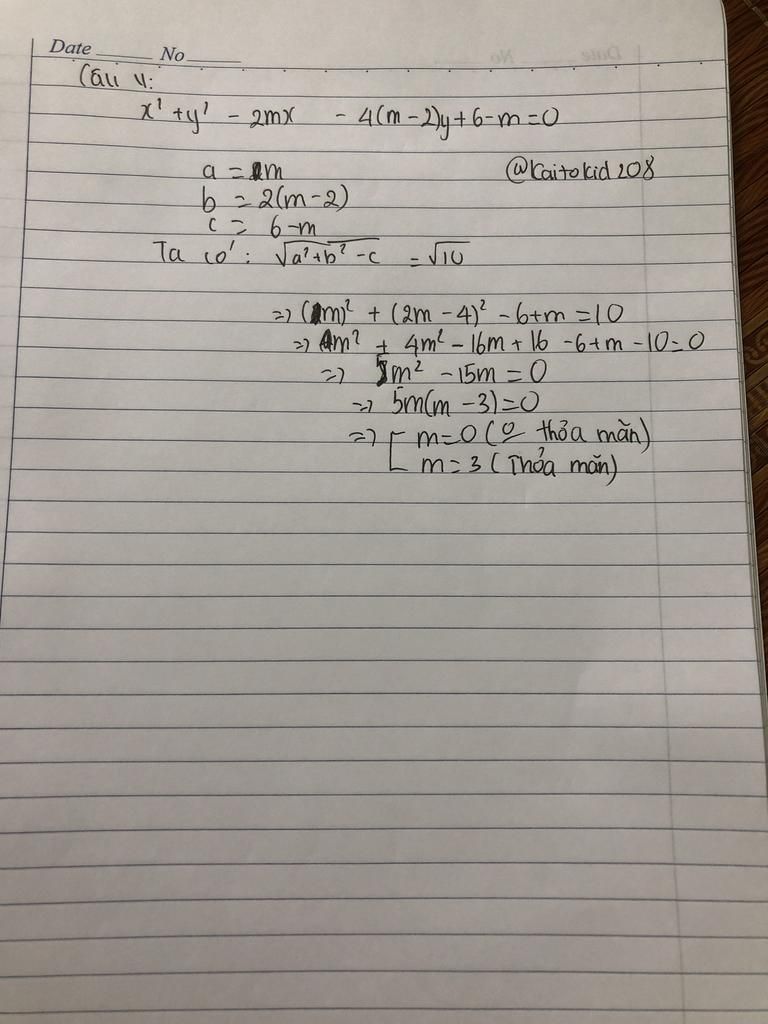 Date No
Câu 4:
x² + y² - 2mx - 4(m-2)y + 6-m = 0
a = m @kaitokid208
b = 2(m-2)
c = 6-m
Ta có: √a²+b²-c = √10
=> (m)² + (2m-4)² - 6+m = 10
=> m² + 4m² - 16m + 16 - 6 + m - 10 = 0
=> 5m² - 15m = 0
=> 5m(m-3) = 0
=> [ m=0 (o thỏa mãn)
m=3 (Thỏa mãn)